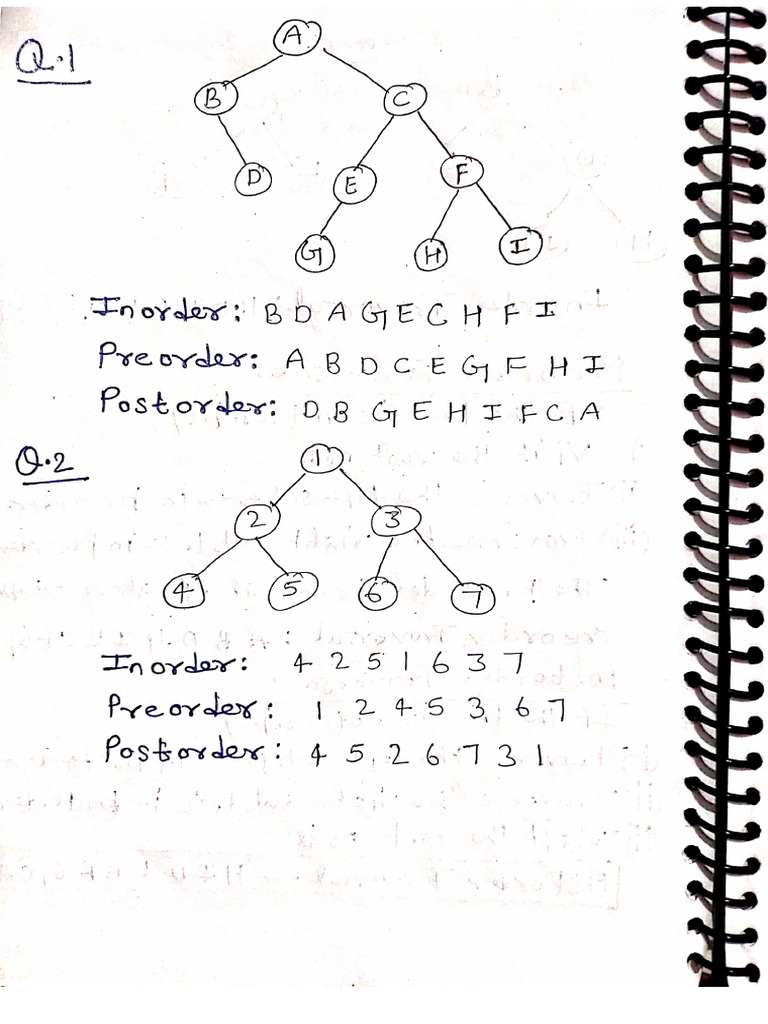 Q.1
A
B C
D E F
G H I
Inorder: B D A G E C H F I
Preorder: A B D C E G F H I
Postorder: D B G E H I F C A
Q.2
1
2 3
4 5 6 7
Inorder: 4 2 5 1 6 3 7
Preorder: 1 2 4 5 3 6 7
Postorder: 4 5 2 6 7 3 1